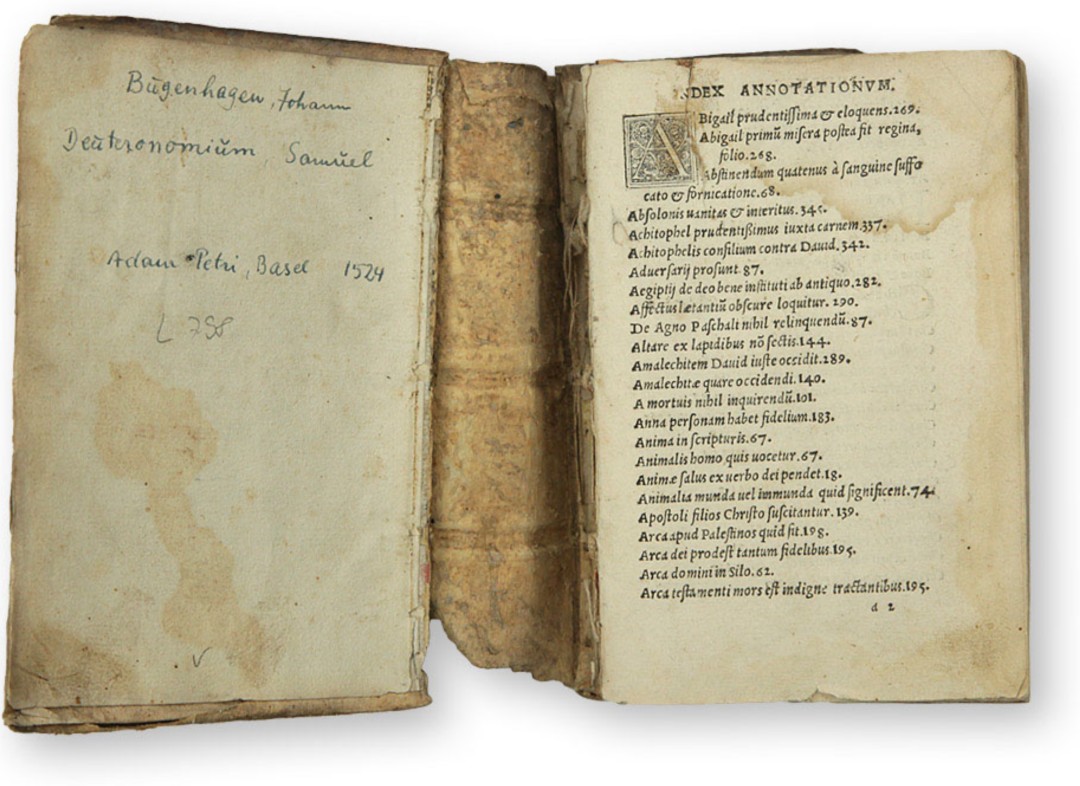 Bügenhagen, Johann
Deüteronomiüm, Samüel
Adam Petri, Basel 1524
L 798
v
INDEX ANNOTATIONVM.
ABigail prudentißima & eloquens.269.
Abigail primũ misera postea fit regina,
folio.268.
Abstinendum quatenus à sanguine suffo
cato & fornicatione.68.
Absolonis uanitas & interitus.345.
Achitophel prudentißimus iuxta carnem.337.
Achitophelis consilium contra Dauid.342.
Aduersarij prosunt.87.
Aegiptij de deo bene instituti ab antiquo.282.
Affectus lætantiũ obscure loquitur. 290.
De Agno Paschali nihil relinquendũ.87.
Altare ex lapidibus nõ sectis.144.
Amalechitem Dauid iuste occidit.289.
Amalechitæ quare occidendi.140.
A mortuis nihil inquirendũ.101.
Anna personam habet fidelium.183.
Anima in scripturis.67.
Animalis homo quis uocetur.67.
Animæ salus ex uerbo dei pendet.18.
Animalia munda uel immunda quid significent.74.
Apostoli filios Christo suscitantur.139.
Arca apud Palestinos quid fit.198.
Arca dei prodest tantum fidelibus.195.
Arca domini in Silo.62.
Arca testamenti mors est indigne tractantibus.195.
a 2